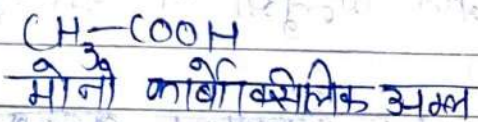 CH₃-COOH
मोनो कार्बोक्सिलिक अम्ल